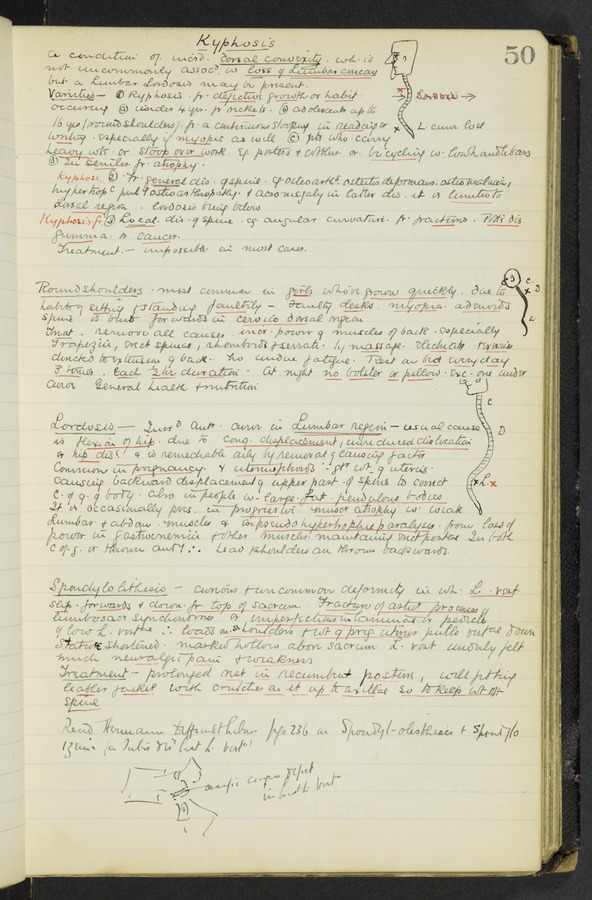 50
Kyphosis
a condition of incrd. dorsal convexity. wh. is
not uncommonly assocd. w loss of Lumbar concav
but a lumbar Lordosis may be present.
Varieties - ① Kyphosis. fr. defective growth or habit
occurring ⓐ under 4 yrs. fr rickets. ⓑ adolescents up to
L. curve lost
16 yrs (round shoulders) fr. a continuous stooping in reading or
writing. especially if myopic as well ⓒ pts who carry
heavy wts. or stoop over work. eg porters & cobblers. or bicycling w. low handlebars
ⓓ In seniles. fr. atrophy.
Kyphosis ② fr general dis. of spine. eg. osteo arth. osteitis deformans. osteo malacia,
hypertroph pul osteoarthropathy & acromegaly in latter dis. it is limited to
dorsal region. Lordosis being below
Kyphosis fr ③ Local dis. of spine. eg angular curvature. fr fractures. Potts dis
gumma. or cancer.
Treatment. - impossible in most cases.
Round shoulders. most common in girls who've grown quickly. due to
habit of sitting & standing faultily - faulty desks. myopia. adenoids
spine is bent forwards in cervico dorsal region
Treat. remove all causes. incr. power of muscles of back. especially
Trapezius, erect spinae, rhomboids & serrati. by massage. electricity. exercises
directed to extension of back. no undue fatigue. Rest in bed every day
3 times. Each ½ hr duration. At night no bolster or pillow. exc. one under
General health & nutrition
C
D
L
Lordosis - Incrd Antr. curve in Lumbar region - usual cause
is flexion of hip. due to cong. displacement, unreduced dislocation
or hip dis. & is remediable only by removal of causing factor
Common in pregnancy. & uterine fibroids ∵ gtr wt. of uterus.
causing backward displacement of upper part of spine to correct
c. of g. of body. also in people w. large fat pendulous bodies
It is occasionally pres. in progressive muscr atrophy w. weak
Lumbar & abdom. muscles & in pseudo hypertrophic paralysis. from loss of
power in gastrocnemii & other muscles maintaining erect posture In both
c of g. is thrown antr. ∴ head & shoulders are thrown backwards.
Spondylolithesis - curious & uncommon deformity in wh. L. vert
slip. forwards & down fr top of sacrum. Fracture of artic processes of
lumbosacr synchondrosis or imperfections in laminae or pedicle
of low L. vertae ∴ loads on shoulders & wt of preg. uterus pulls vertae down
Stature shortened. marked hollow above sacrum. L. vert unduly felt
much neuralgic pain & weakness
Treatment - prolonged rest in recumbent posture, well fitting
leather jacket with crutches on it up to axillae so to keep wt off
spine
Read Hermann Difficult Labour page 236 on Spondyl-olesthesis &